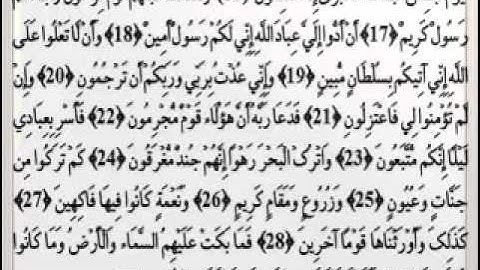 رَسُولٌ كَرِيمٌ ﴿17﴾ أَنْ أَدُّوا إِلَيَّ عِبَادَ اللَّهِ إِنِّي لَكُمْ رَسُولٌ أَمِينٌ ﴿18﴾ وَأَنْ لَا تَعْلُوا عَلَى
اللَّهِ إِنِّي آتِيكُمْ بِسُلْطَانٍ مُبِينٍ ﴿19﴾ وَإِنِّي عُذْتُ بِرَبِّي وَرَبِّكُمْ أَنْ تَرْجُمُونِ ﴿20﴾ وَإِنْ
لَمْ تُؤْمِنُوا لِي فَاعْتَزِلُونِ ﴿21﴾ فَدَعَا رَبَّهُ أَنَّ هَؤُلَاءِ قَوْمٌ مُجْرِمُونَ ﴿22﴾ فَأَسْرِ بِعِبَادِي
لَيْلًا إِنَّكُمْ مُتَّبَعُونَ ﴿23﴾ وَاتْرُكِ الْبَحْرَ رَهْوًا إِنَّهُمْ جُنْدٌ مُغْرَقُونَ ﴿24﴾ كَمْ تَرَكُوا مِنْ
جَنَّاتٍ وَعُيُونٍ ﴿25﴾ وَزُرُوعٍ وَمَقَامٍ كَرِيمٍ ﴿26﴾ وَنَعْمَةٍ كَانُوا فِيهَا فَاكِهِينَ ﴿27﴾
كَذَلِكَ وَأَوْرَثْنَاهَا قَوْمًا آخَرِينَ ﴿28﴾ فَمَا بَكَتْ عَلَيْهِمُ السَّمَاءُ وَالْأَرْضُ وَمَا كَانُوا